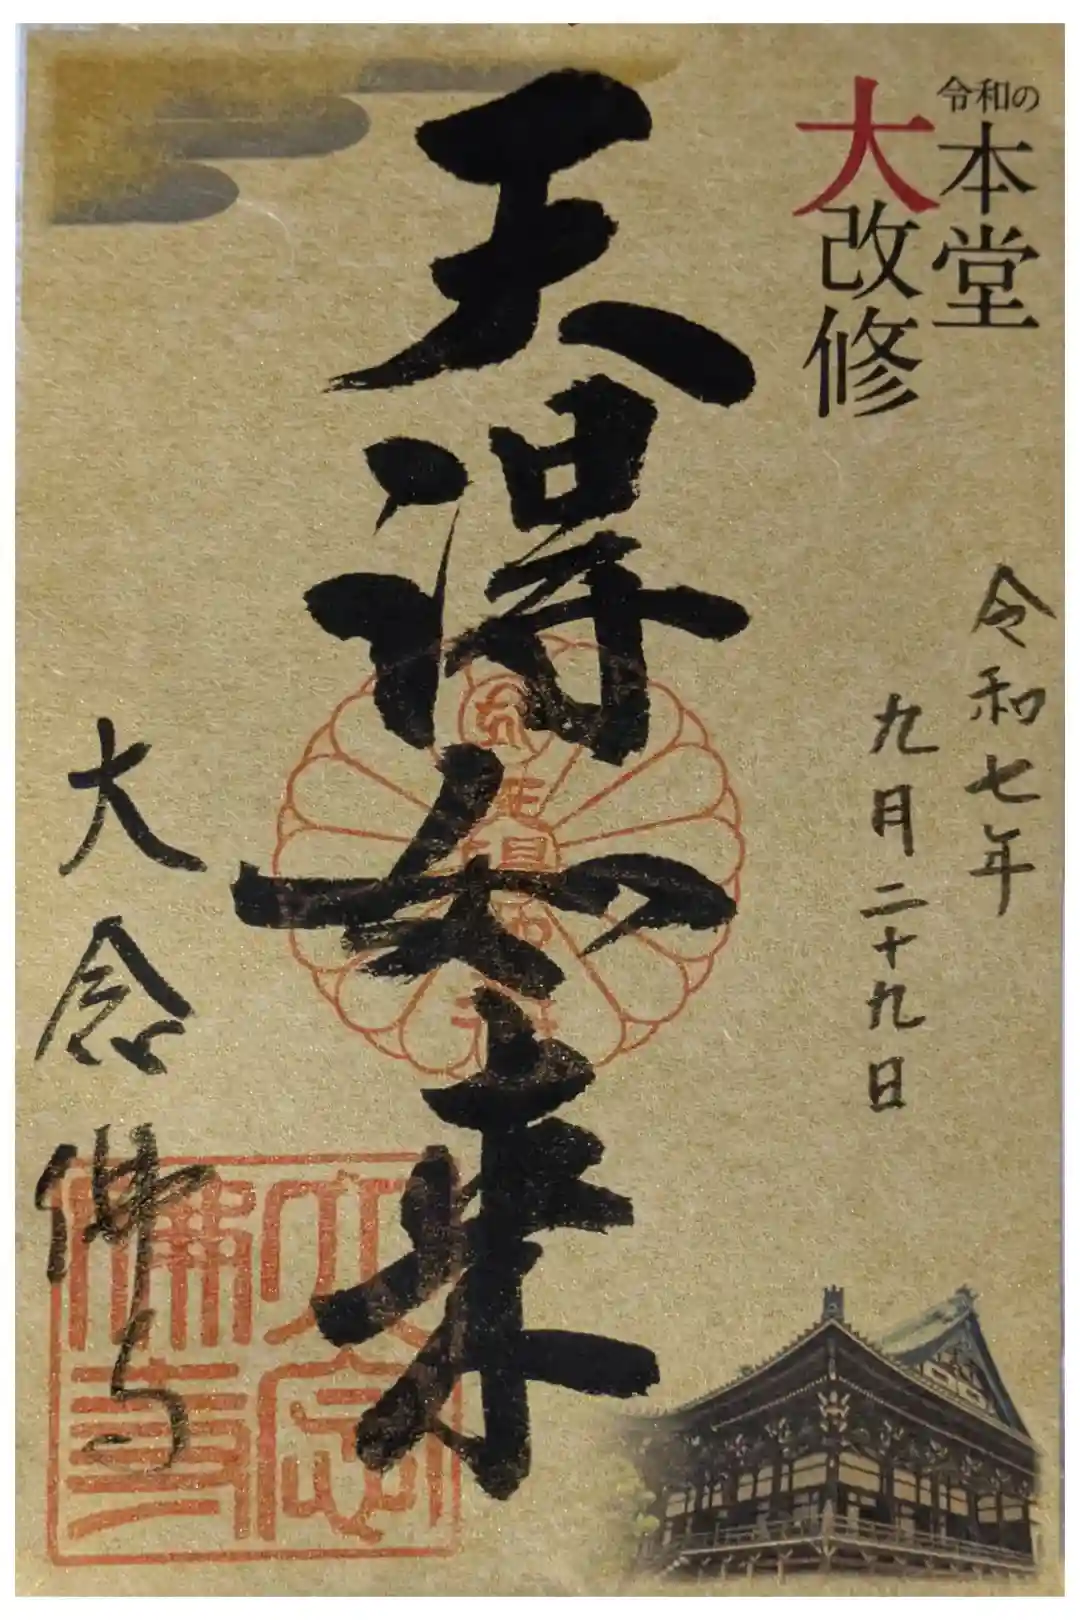 令和の本堂
大改修
令和七年
九月二十九日
天得如来
大念佛寺
大念
佛寺